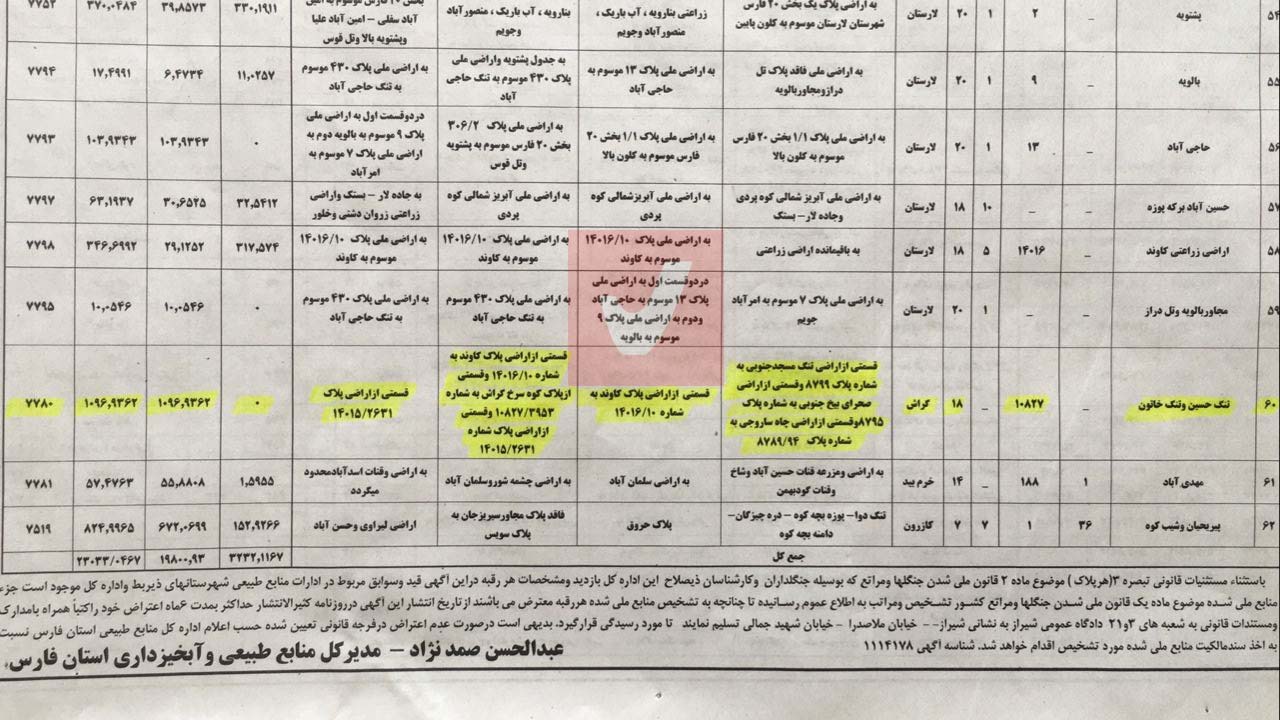 ۵۴ پشتویه _ ۲ ۱ ۲۰ لارستان به اراضی پلاک یک بخش ۲۰ فارس شهرستان لارستان موسوم به کلون پایین زراعتی بنارویه ، آب باریک ، منصورآباد وجویم بنارویه ، آب باریک ، منصورآباد وجویم بخش ۲۰ فارس موسوم به امین آباد سفلی – امین آباد علیا وپشتویه بالا وتل قوس ۳۳۰,۱۹۱۱ ۳۹,۸۵۷۳ ۳۷۰,۰۴۸۴ ۷۷۵۲
۵۵ بالویه _ ۹ ۱ ۲۰ لارستان به اراضی ملی فاقد پلاک تل درازومجاوربالویه به اراضی ملی پلاک ۱۳ موسوم به حاجی آباد به جدول پشتویه واراضی ملی پلاک ۴۳۰ موسوم به تنگ حاجی آباد به اراضی ملی پلاک ۴۳۰ موسوم به تنگ حاجی آباد ۱۱,۰۲۵۷ ۶,۴۷۳۴ ۱۷,۴۹۹۱ ۷۷۹۴
۵۶ حاجی آباد _ ۱۳ ۱ ۲۰ لارستان به اراضی ملی پلاک ۱/۱ بخش ۲۰ فارس موسوم به کلون بالا به اراضی ملی پلاک ۱/۱ بخش ۲۰ فارس موسوم به کلون بالا به اراضی ملی پلاک ۳۰۶/۲ بخش ۲۰ فارس موسوم به پشتویه وتل قوس دردوقسمت اول به اراضی ملی پلاک ۹ موسوم به بالویه دوم به اراضی ملی پلاک ۷ موسوم به امرآباد ۰ ۱۰۳,۹۳۴۳ ۱۰۳,۹۳۴۳ ۷۷۹۳
۵۷ حسین آباد برکه پوزه _ _ ۱۰ ۱۸ لارستان به اراضی ملی آبریز شمالی کوه پردی وجاده لار– بستک به اراضی ملی آبریزشمالی کوه پردی به اراضی ملی آبریز شمالی کوه پردی به جاده لار – بستک واراضی زراعتی زروان دشتی وخلور ۳۲,۵۴۱۲ ۳۰,۶۵۲۵ ۶۳,۱۹۳۷ ۷۷۹۷
۵۸ اراضی زراعتی کاوند _ ۱۴۰۱۶ ۵ ۱۸ لارستان به باقیمانده اراضی زراعتی به اراضی ملی پلاک ۱۴۰۱۶/۱۰ موسوم به کاوند به اراضی ملی پلاک ۱۴۰۱۶/۱۰ موسوم به کاوند به اراضی ملی پلاک ۱۴۰۱۶/۱۰ موسوم به کاوند ۳۱۷,۵۷۴ ۲۹,۱۲۵۲ ۳۴۶,۶۹۹۲ ۷۷۹۸
۵۹ مجاوربالویه وتل دراز _ _ ۱ ۲۰ لارستان به اراضی ملی پلاک ۷ موسوم به امرآباد جویم دردوقسمت اول به اراضی ملی پلاک ۱۳ موسوم به حاجی آباد ودوم به اراضی ملی پلاک ۹ موسوم به بالویه به اراضی ملی پلاک ۴۳۰ موسوم به تنگ حاجی آباد به اراضی ملی پلاک ۴۳۰ موسوم به تنگ حاجی آباد ۰ ۱۰,۰۵۴۶ ۱۰,۰۵۴۶ ۷۷۹۵
۶۰ تنگ حسین وتنگ خاتون _ ۱۰۸۲۷ _ ۱۸ گراش قسمتی ازاراضی تنگ مسجدجنوبی به شماره پلاک ۸۷۹۹ وقسمتی ازاراضی صحرای بیخ جنوبی به شماره پلاک ۸۷۹۵وقسمتی ازاراضی چاه ساروجی به شماره پلاک ۸۷۸۹/۹۴ قسمتی ازاراضی پلاک کاوند به شماره ۱۴۰۱۶/۱۰ قسمتی ازاراضی پلاک کاوند به شماره ۱۴۰۱۶/۱۰ وقسمتی ازپلاک کوه سرخ گراش به شماره ۱۰۸۲۷/۳۹۵۳ وقسمتی ازاراضی پلاک شماره ۱۴۰۱۵/۲۶۳۱ قسمتی ازاراضی پلاک ۱۴۰۱۵/۲۶۳۱ ۰ ۱۰۹۶,۹۳۶۲ ۱۰۹۶,۹۳۶۲ ۷۷۸۰
۶۱ مهدی آباد ۱ ۱۸۸ _ ۱۴ خرم بید به اراضی ومزرعه قنات حسین آباد وشاخ وقنات گودبهمن به اراضی سلمان آباد به اراضی چشمه شوروسلمان آباد به اراضی وقنات اسدآبادمحدود میگردد ۱,۵۹۵۵ ۵۵,۸۸۰۸ ۵۷,۴۷۶۳ ۷۷۸۱
۶۲ پیریحیان وشیب کوه ۳۶ ۱ ۷ ۷ کازرون تنگ دوا– پوزه بچه کوه – دره چیزگان– دامنه بچه کوه پلاک حروق فاقد پلاک مجاورسربیزجان به پلاک سویس اراضی لیراوی وحسن آباد ۱۵۲,۹۲۶۶ ۶۷۲,۰۶۹۹ ۸۲۴,۹۹۶۵ ۷۵۱۹
جمع کل ۳۲۳۲,۱۱۶۷ ۱۹۸۰۰,۹۳ ۲۳۰۳۳/۰۴۶۷
باستثناء مستثنیات قانونی تبصره ۳(هرپلاک) موضوع ماده ۲ قانون ملی شدن جنگلها ومراتع که بوسیله جنگلداران وکارشناسان ذیصلاح این اداره کل بازدید ومشخصات هر رقبه دراین آگهی قید وسوابق مربوط در ادارات منابع طبیعی شهرستانهای ذیربط واداره کل موجود است جزء
منابع ملی شده موضوع ماده یک قانون ملی شدن جنگلها ومراتع کشور تشخیص ومراتب به اطلاع عموم رسانیده تا چنانچه به تشخیص منابع ملی شده هررقبه معترض می باشند ازتاریخ انتشار این آگهی درروزنامه کثیرالانتشار حداکثر بمدت ۶ماه اعتراض خود راکتباً همراه بامدارک
ومستندات قانونی به شعبه های ۳و۲۱ دادگاه عمومی شیراز به نشانی شیراز-– خیابان ملاصدرا – خیابان شهید جمالی تسلیم نمایند تا مورد رسیدگی قرارگیرد. بدیهی است درصورت عدم اعتراض درفرجه قانونی تعیین شده حسب اعلام اداره کل منابع طبیعی استان فارس نسبت
به اخذ سندمالکیت منابع ملی شده مورد تشخیص اقدام خواهد شد. شناسه آگهی ۱۱۱۴۱۷۸
عبدالحسن صمد نژاد – مدیرکل منابع طبیعی وآبخیزداری استان فارس